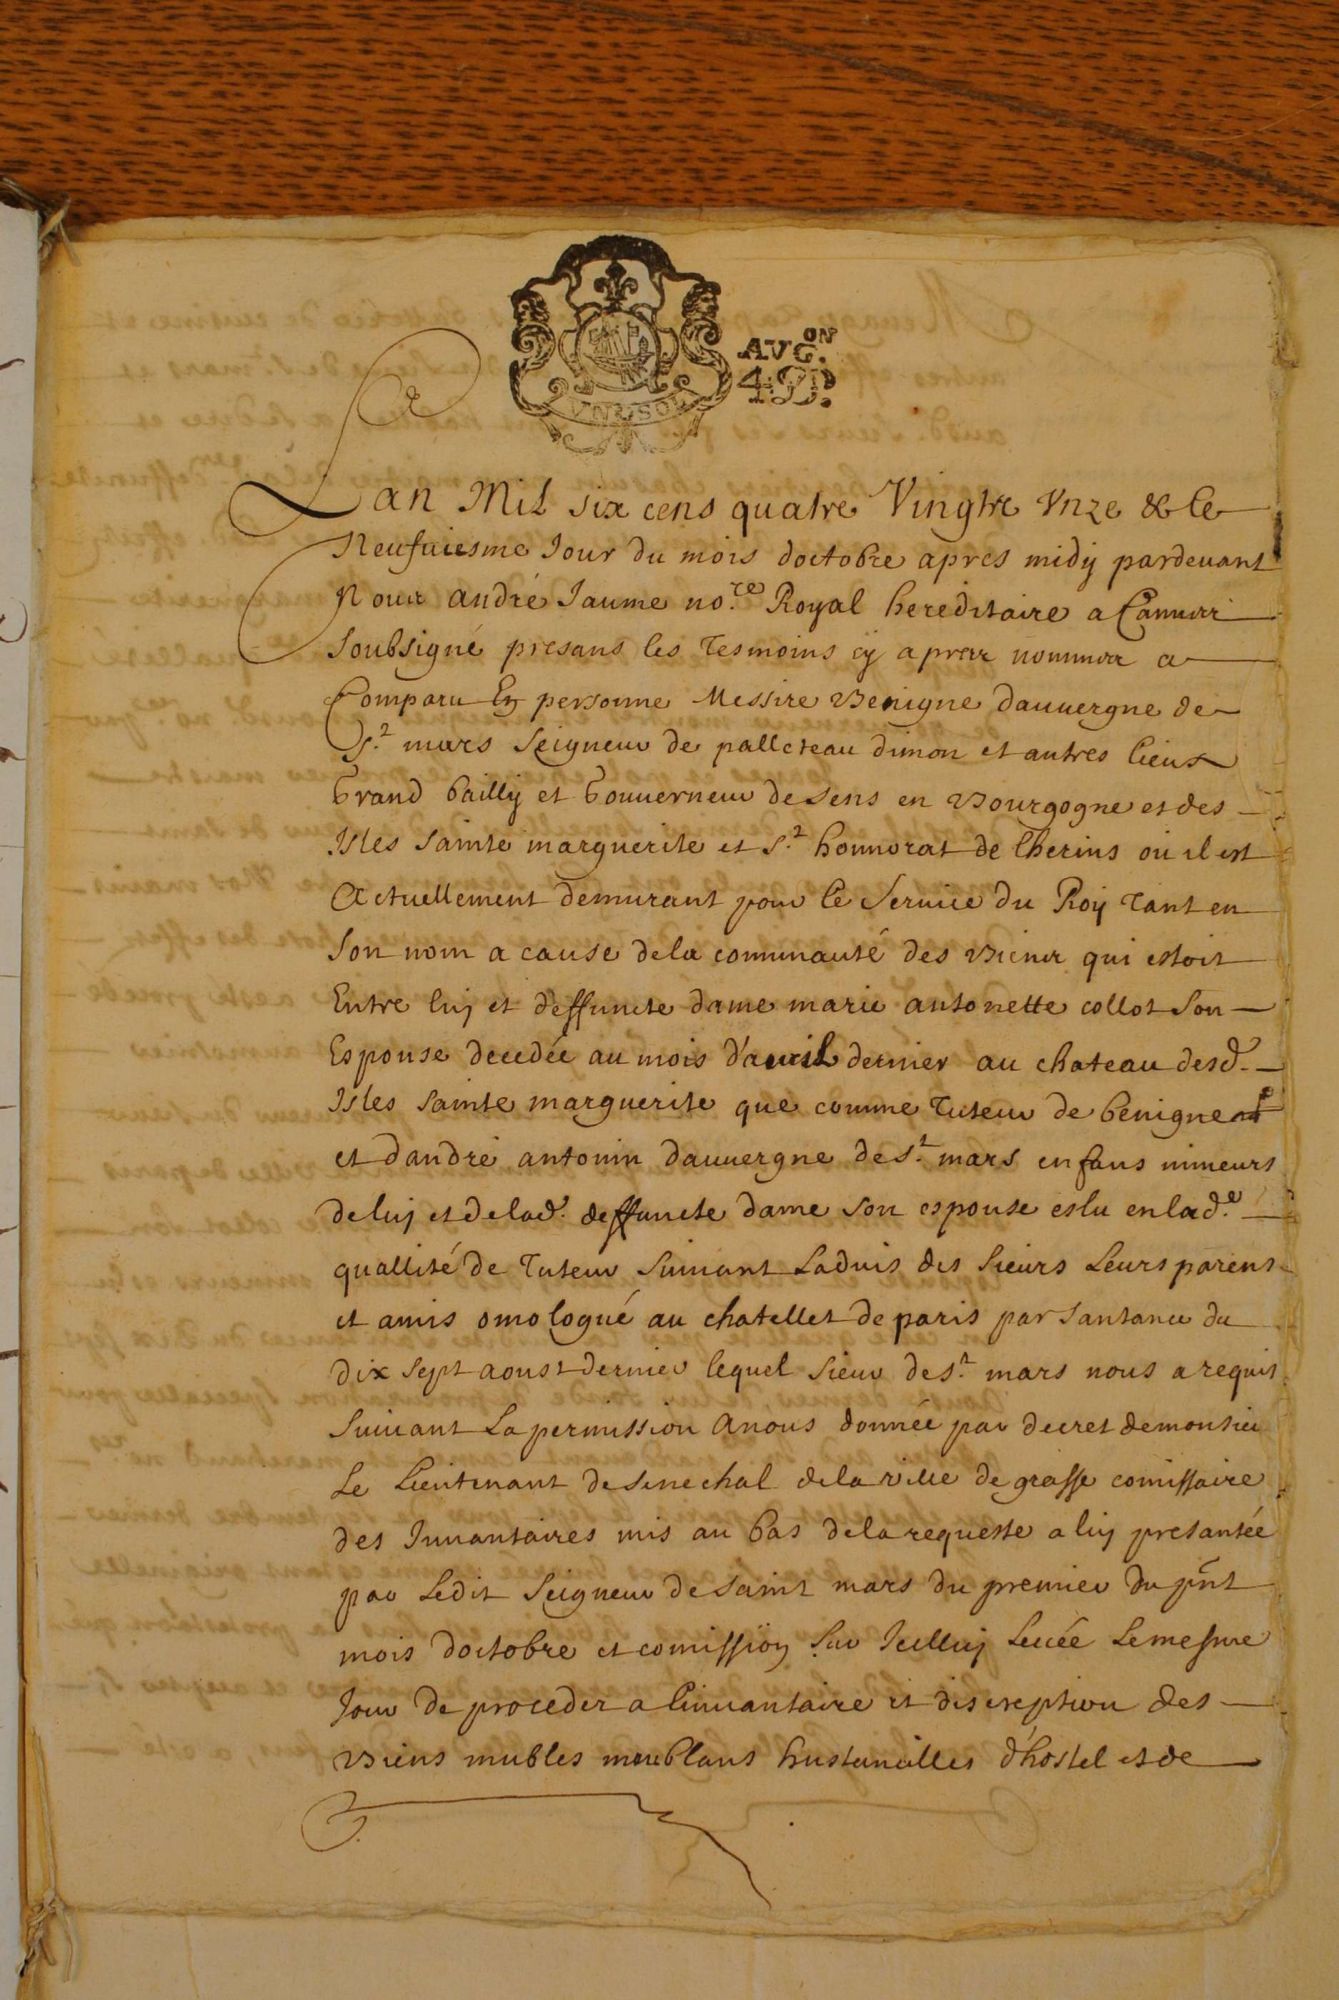 AVG.ON
4 D.
VN SOL
Lan Mil six cens quatre Vingtz Vnze & le
Neufuiesme Jour du mois doctobre apres midy pardeuant
Nous andré Jaume no.re Royal hereditaire a Cannes
Soubsigné presans les Tesmoins cy apres nommes a
Comparu En personne Messire Benigne dauuergne de
St mars Seigneur de palleteau dimon et autres lieux
Grand bailly et Gouuerneur de Sens en Bourgogne et des
Isles Sainte marguerite et St honnorat de lherins ou il est
Actuellement demurant pour le Seruice du Roy Tant en
Son nom a cause dela communauté des Biens qui estoit
Entre luy et deffuncte dame marie antonette collot Son
Espouse decedée au mois d'auril dernier au chateau desd.
Isles Sainte marguerite que comme Tuteur de benigne
et dandré antonin dauuergne de St mars enfans mineurs
de luy et de lad. deffuncte dame son espouse eslu en lad.e
quallité de Tuteur Suiuant Laduis des Sieurs Leurs parens
et amis omologué au chatellet de paris par Santance du
dix Sept aoust dernier lequel Sieur de St mars nous a requis
Suiuant La permission Anous donnée par decret de monsieu
Le Lieutenant de Senechal dela ville de grasse comissaire
des Inuantaires mis au bas dela requeste a luy presantée
par Ledit Seigneur de Saint mars du premier du pnt
mois doctobre et comission Sur Icelluy Leuée Le mesme
Jour de proceder a linuantaire et discreption des
Biens mubles meublans hustancilles d'hostel et de